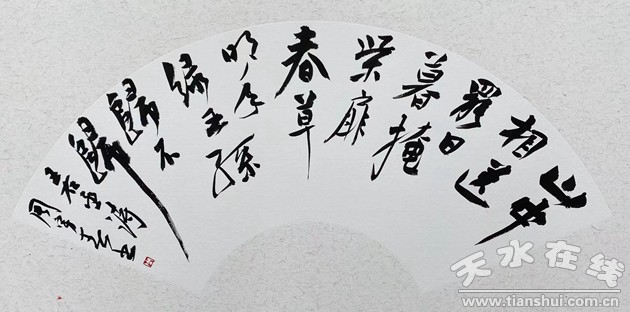 山中
相送
罷日
暮掩
柴扉
春草
明年
綠王孫
歸不
歸
天水在线
www.tianshui.com.cn